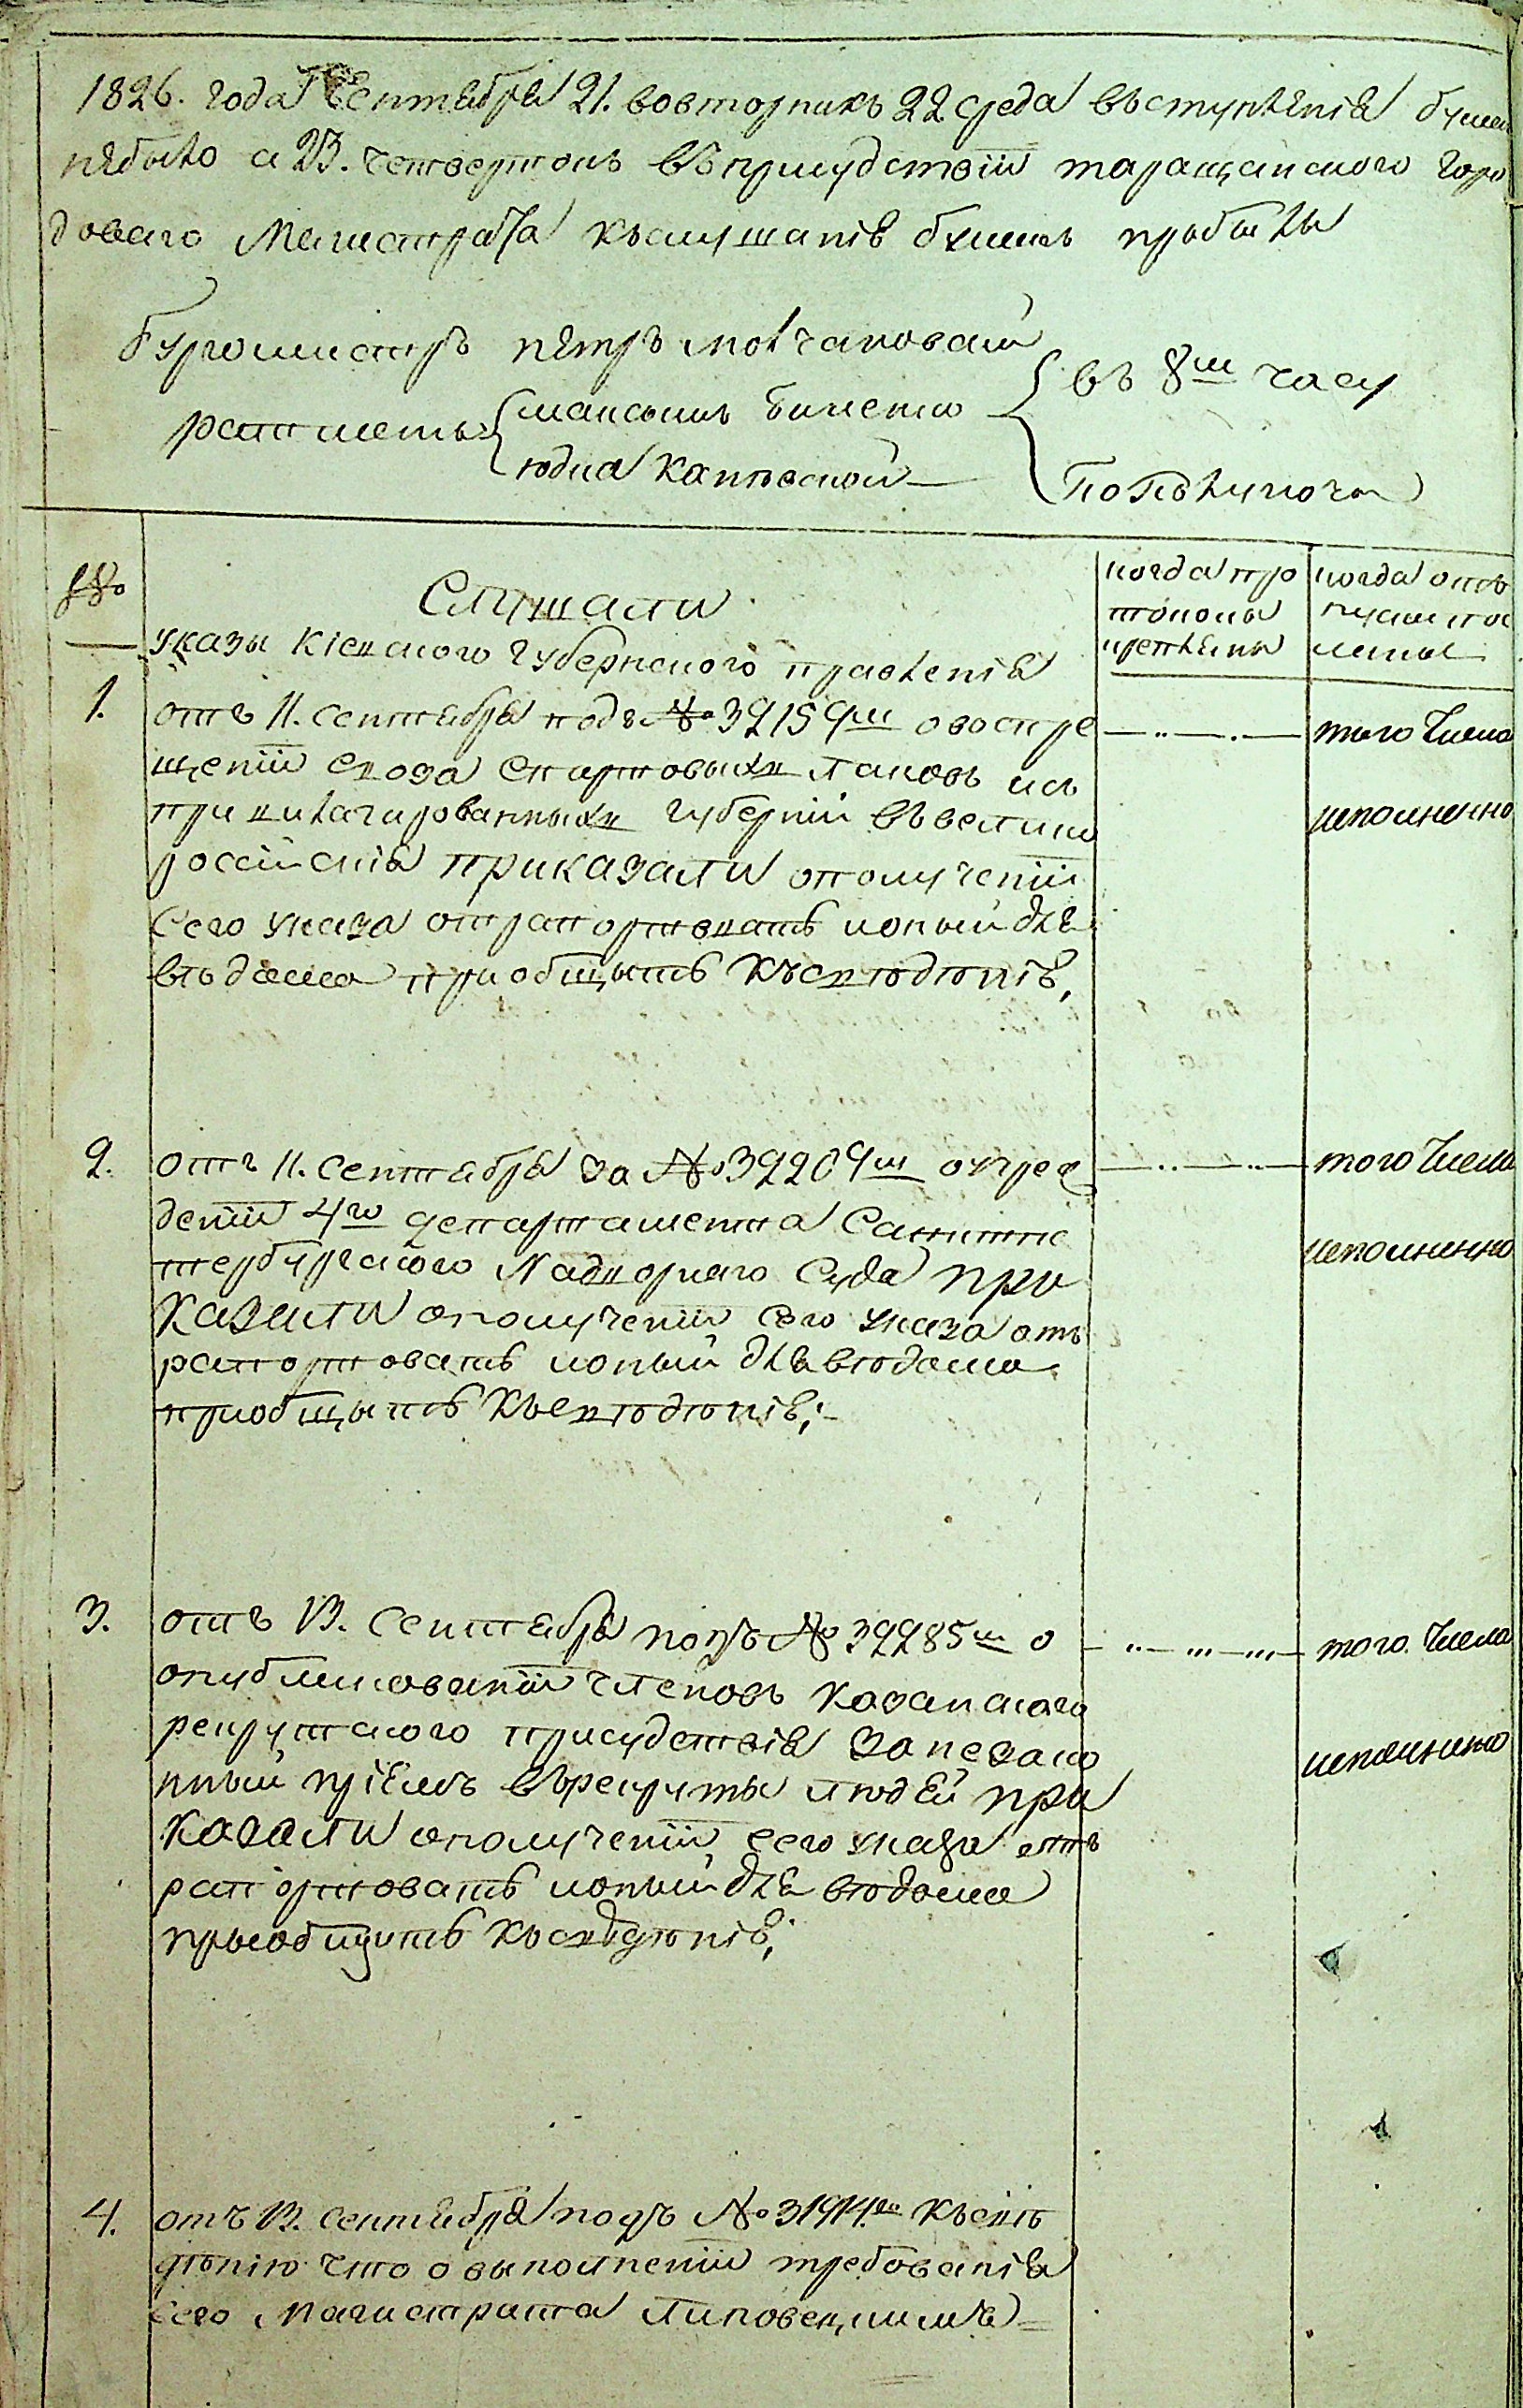 1826. года Сентября 21. вовторникъ 22 среда въступленія бумагъ
небыло а 23. четвертокъ въ присудствіи таращанского горо
доваго Магистрата къслушанію бумагъ прибыли
бургомистръ петръ молчановскій
ратманы
максымъ
юдка каневской
въ 8м часу
пополуночи
№
Слушали
когда про
токолы
когда отъ
указы кіевского губернского правленія
1.
отъ 11. сентября подъ № 39159м овоспре
щеніи свода скартовыхъ
привилегированныхъ губерній въвелико
россійскія приказали ополученіи
сего указа отрапортовать копый для
въдома приобщыть късведенію,
того числа
исполненно
2.
отъ 11. сентября за № 39209м
деніи 4го департамента Санктпе
тербургского Надворнаго Суда при
казали ополученіи сего указа отъ
рапортовать копый для вюдома
приобщыть къ сведенію;
того числа
исполненно
3.
отъ 13. сентября подъ № 39285м о
опубликованіи членовъ казанского
рекрутского присудствія занезако
нный пріемъ върекруты людей при
казали ополученіи сего указа отъ
рапортовать копый для вюдома
приобщить къ сведенію;
того числа
исполненно
4.
отъ 13. сентября подъ № 31914м къ свѣ
дѣнію что о выполненіи требованія
сего Магистрата липовецкимъ